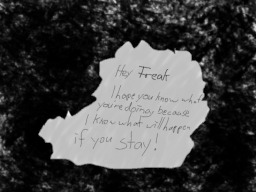 Hey Freak
I hope you know what
you're doing, because
I know what will happen
if you stay!